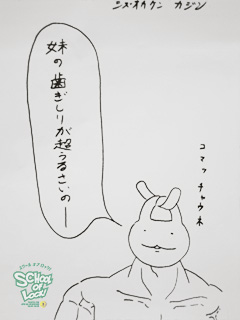 シズオカケン カジン
妹の歯ぎしりが超うるさいのー
コマッチャウネ
SCHOOL OF LOCK!